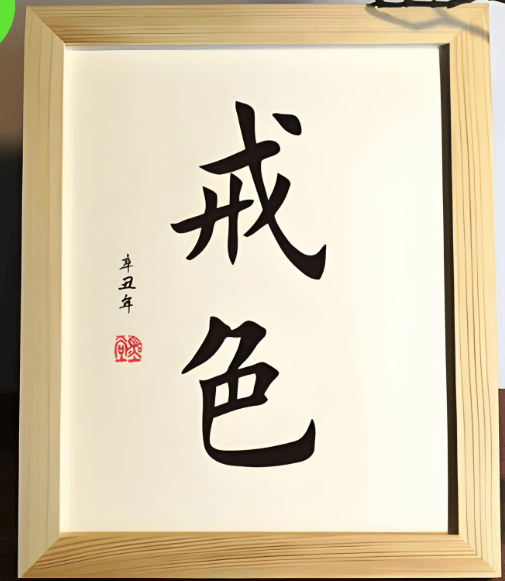 戒色
辛丑年